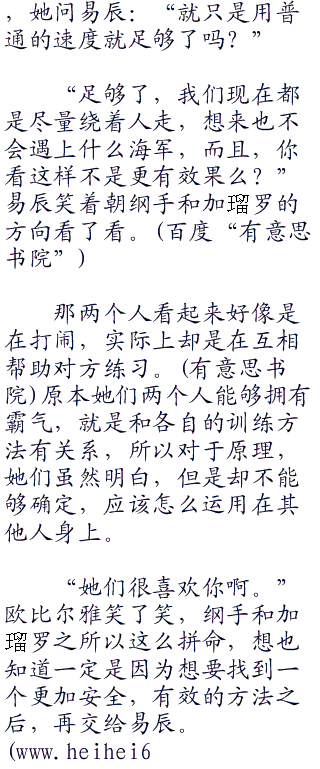 ，她问易辰：“就只是用普
通的速度就足够了吗？”
“足够了，我们现在都
是尽量绕着人走，想来也不
会遇上什么海军，而且，你
看这样不是更有效果么？”
易辰笑着朝纲手和加瑠罗的
方向看了看。(百度“有意思
书院”)
那两个人看起来好像是
在打闹，实际上却是在互相
帮助对方练习。(有意思书
院)原本她们两个人能够拥有
霸气，就是和各自的训练方
法有关系，所以对于原理，
她们虽然明白，但是却不能
够确定，应该怎么运用在其
他人身上。
“她们很喜欢你啊。”
欧比尔雅笑了笑，纲手和加
瑠罗之所以这么拼命，想也
知道一定是因为想要找到一
个更加安全，有效的方法之
后，再交给易辰。
(www.heihei6